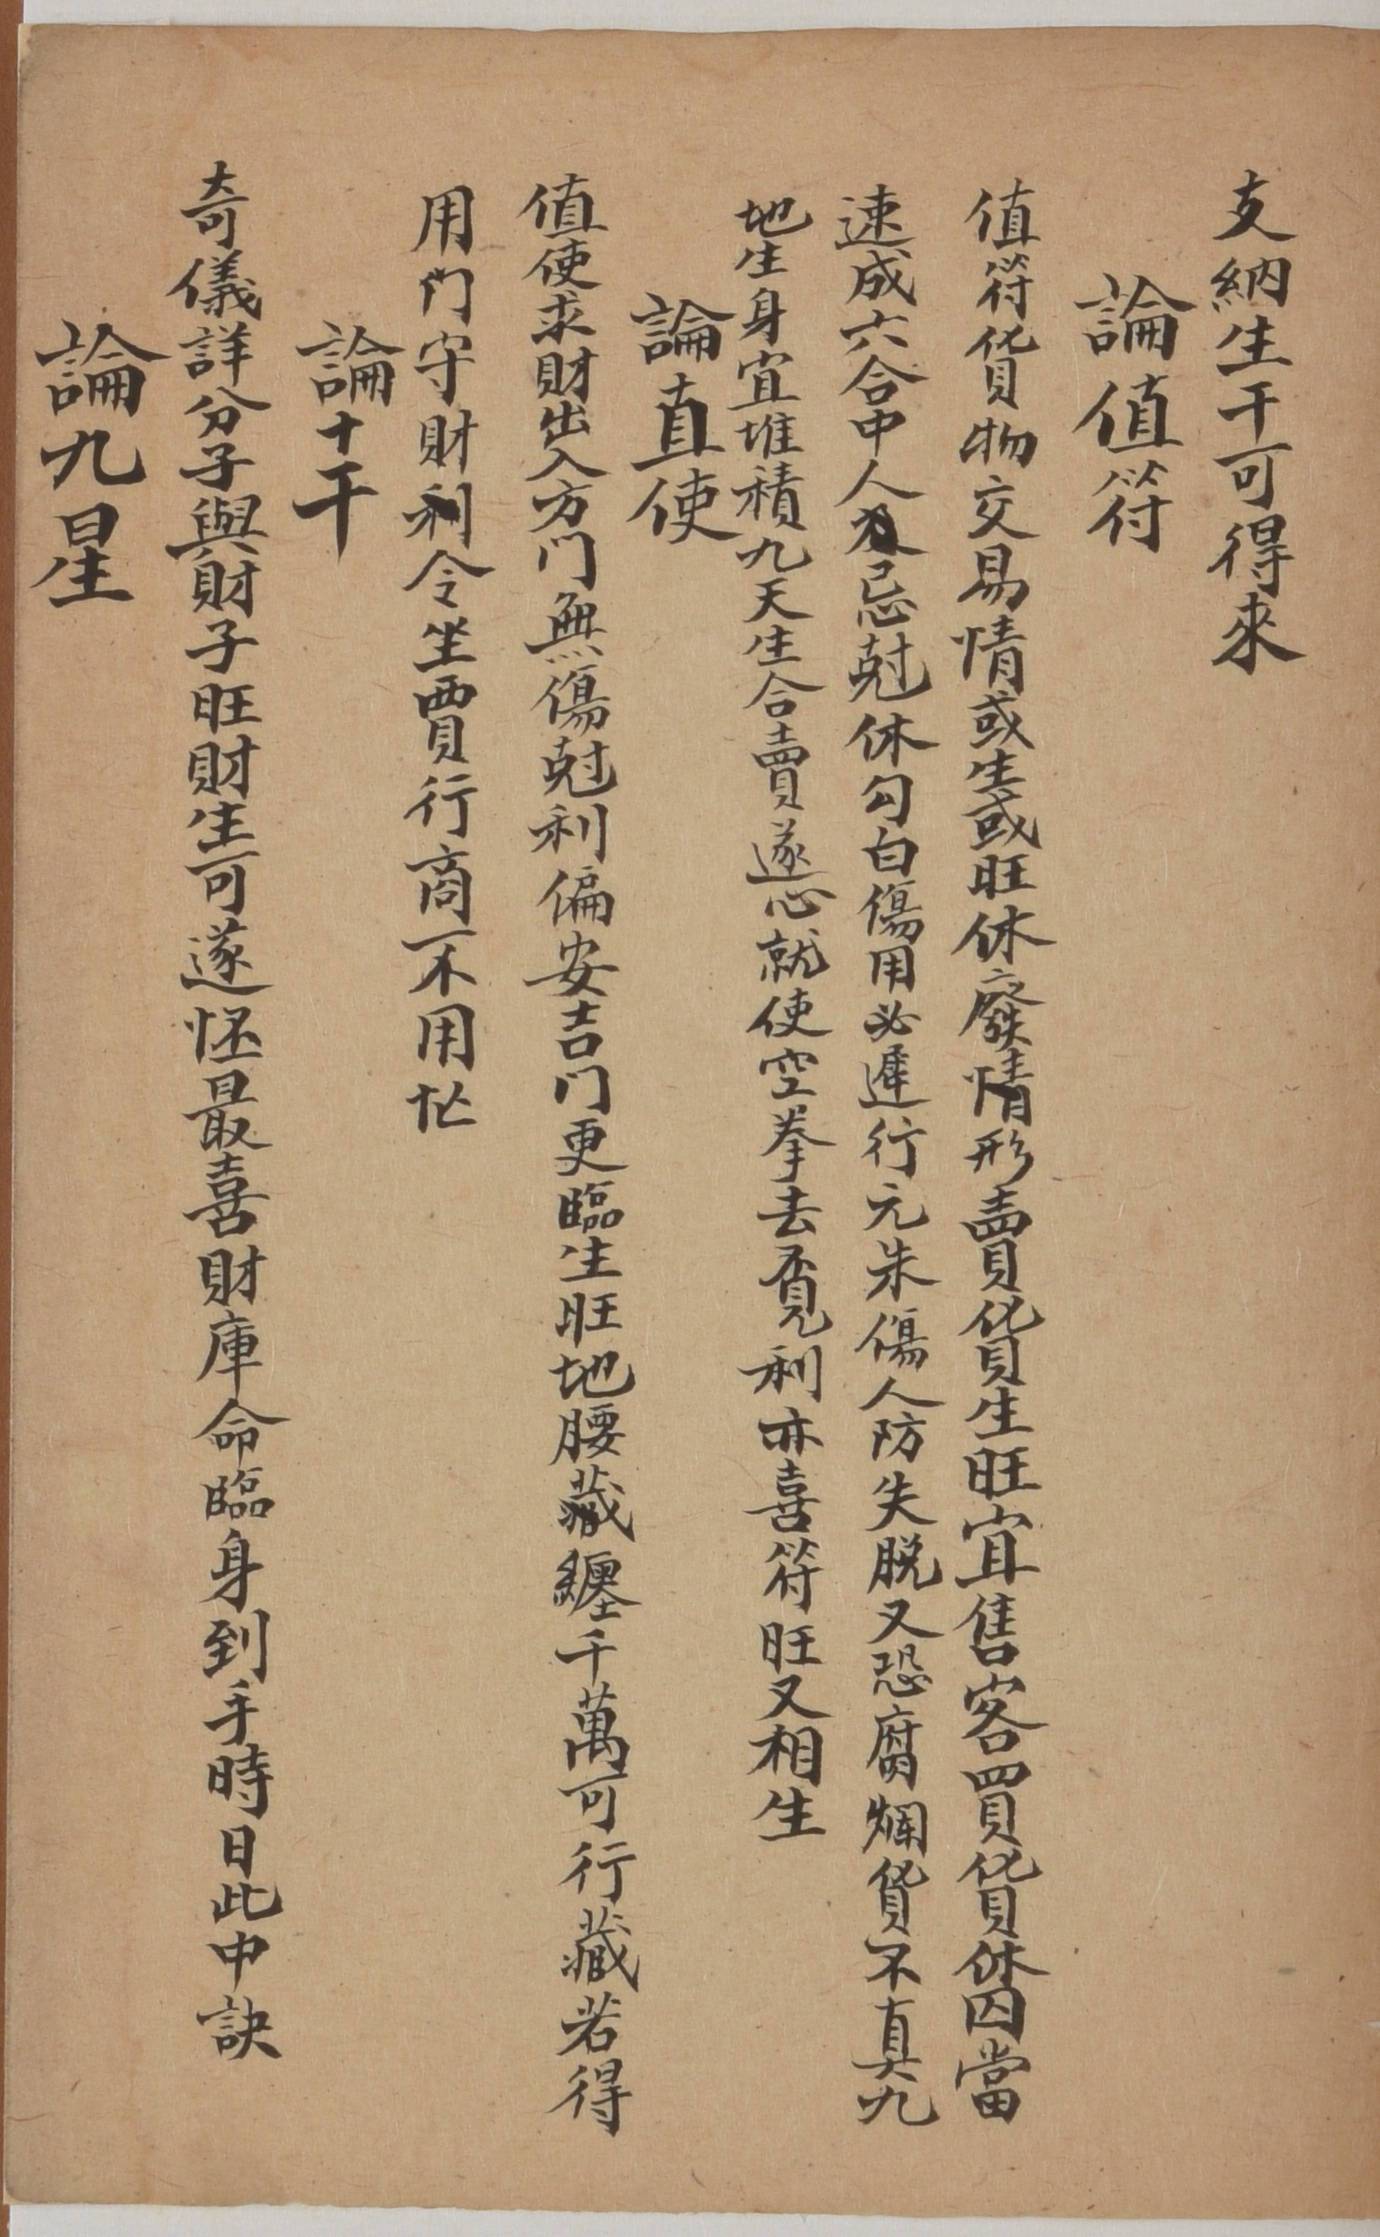 支納生干可得來
論值符
值符貨物交易情或生或旺休廢情形賣貨生旺宜售客買貨休囚當
速成六合中人㝡忌尅休勾白傷用必遲行元朱傷人防失脫又恐腐爛貨不真九
地生身宜堆積九天生合賣遂心就使空拳去覔利亦喜符旺又相生
論直使
值使求財出入方門無傷尅利偏安吉門更臨生旺地腰藏纏千萬可行藏若得
用門守財利令坐賈行商不用忙
論十干
奇儀詳分子與財子旺財生可遂怀最喜財庫命臨身到手時日此中訣
論九星